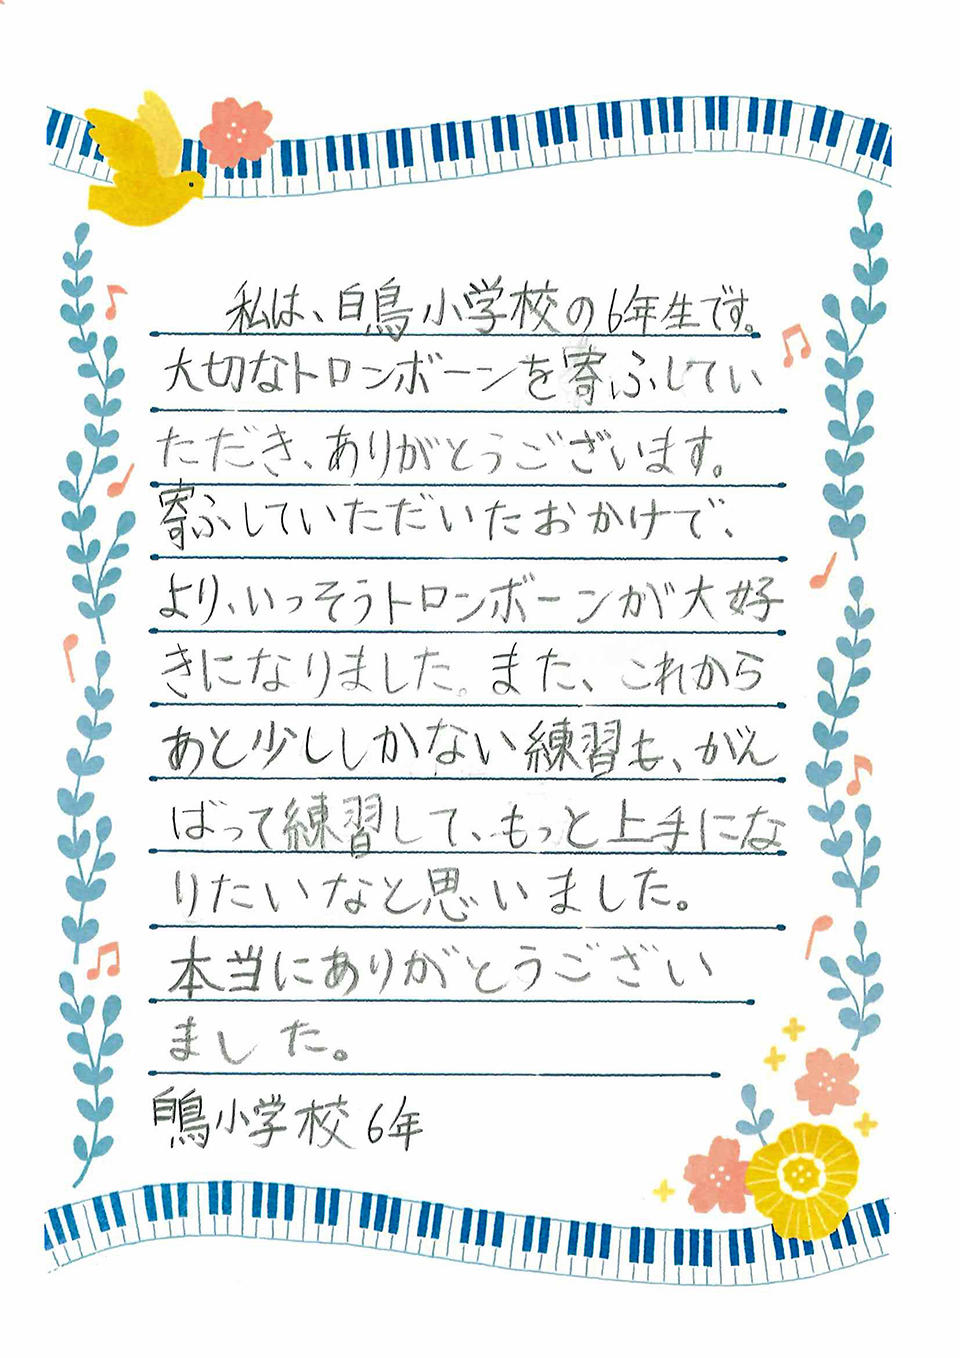 私は、白鳥小学校の6年生です。
大切なトロンボーンを寄ふしてい
ただき、ありがとうございます。
寄ふしていただいたおかけで、
より、いっそうトロンボーンが大好
きになりました。また、これから
あと少ししかない練習も、がん
ばって練習して、もっと上手にな
りたいなと思いました。
本当にありがとうござい
ました。
白鳥小学校6年